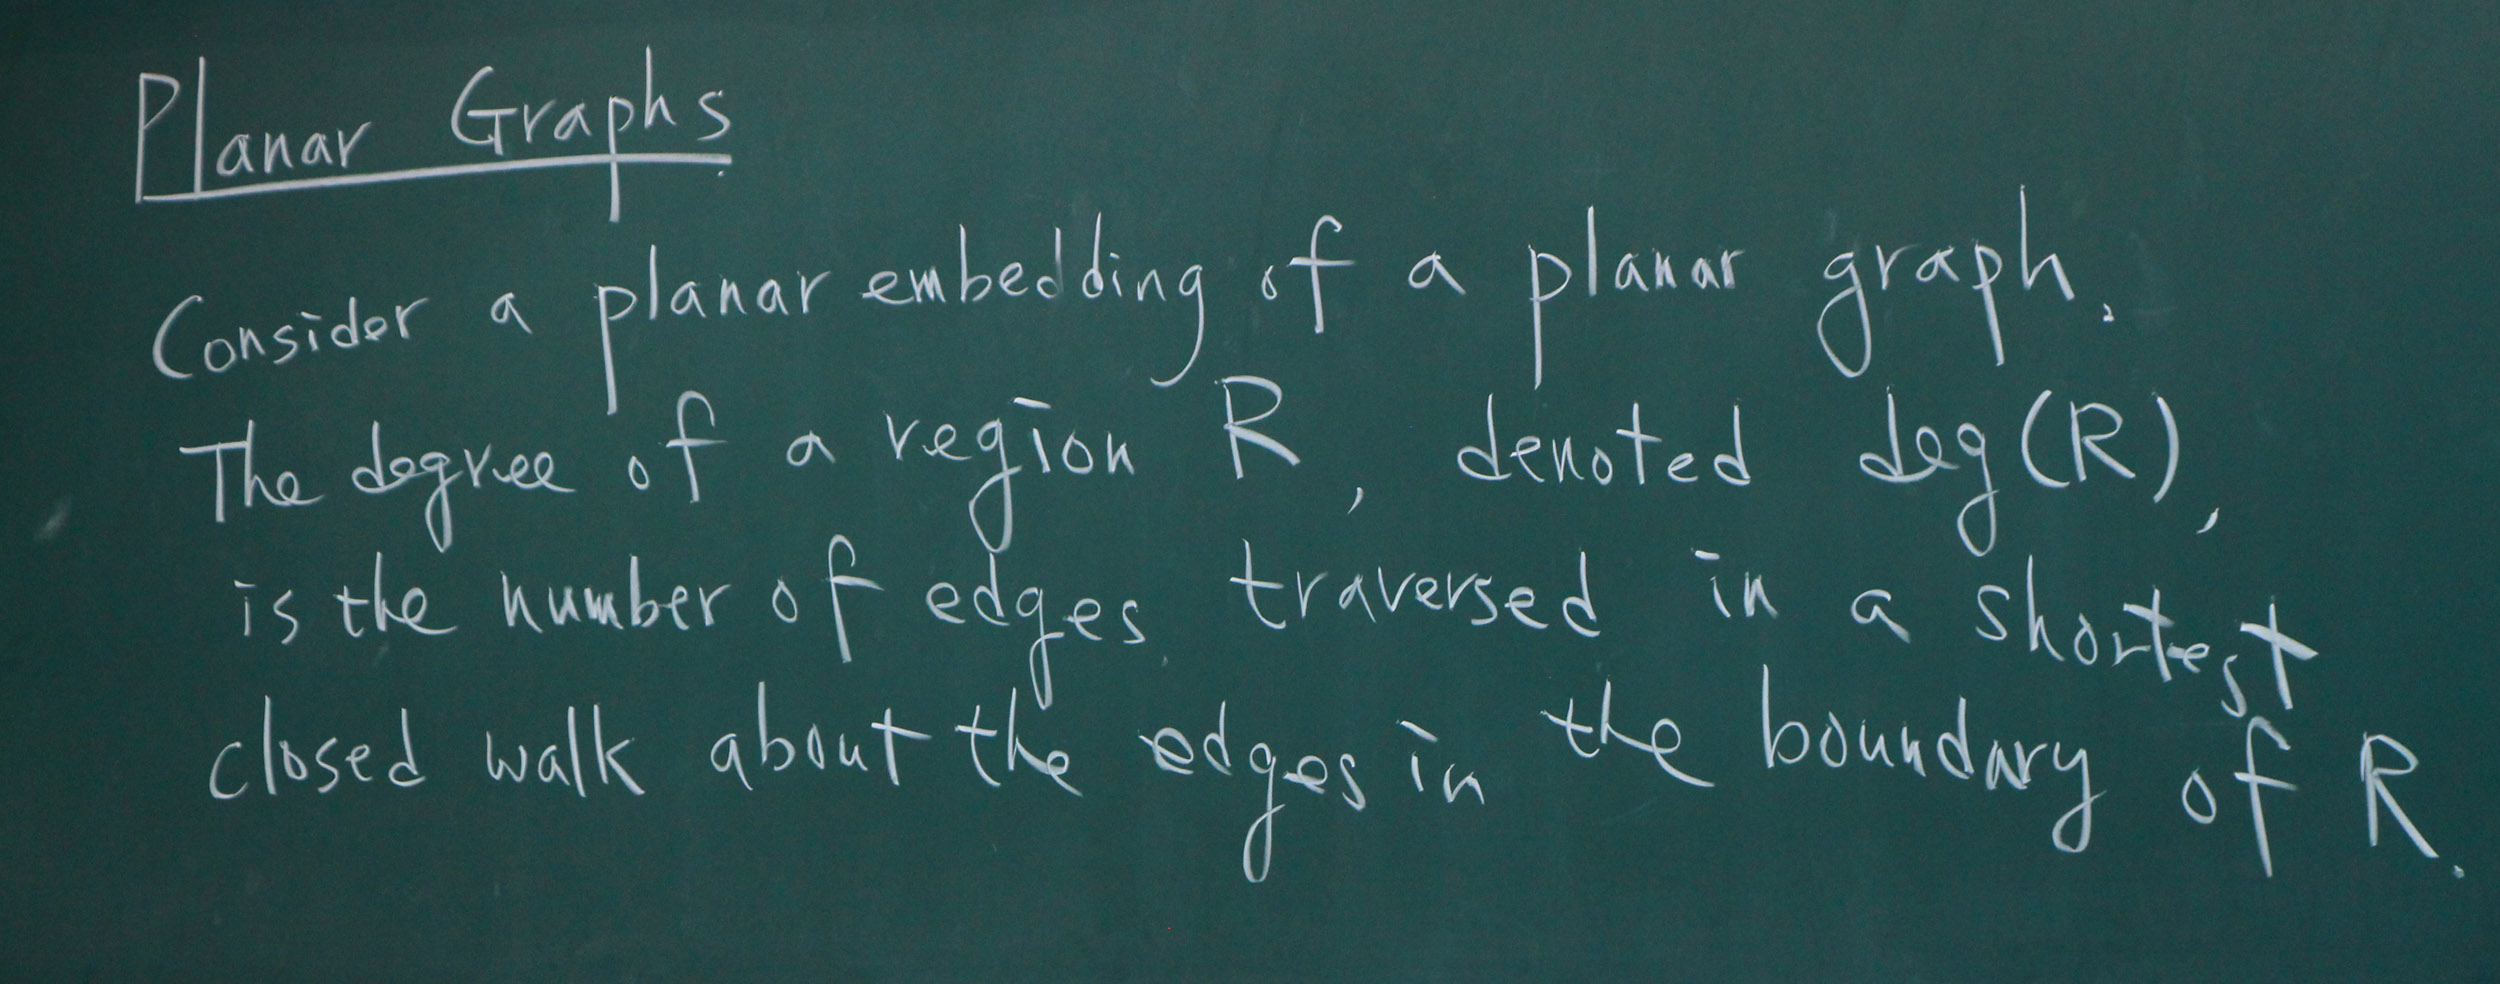 Planar Graphs
Consider a planar embedding of a planar graph.
The degree of a region R, denoted deg(R),
is the number of edges traversed in a shortest
closed walk about the edges in the boundary of R.